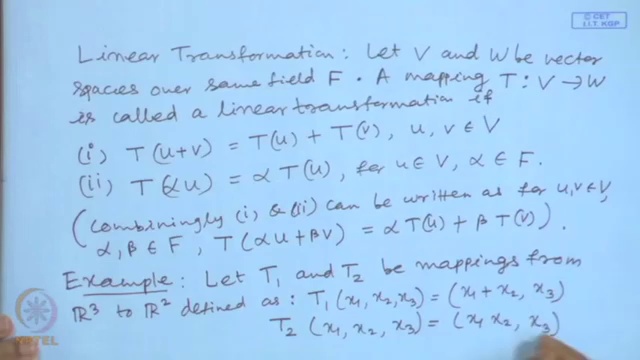 © CET
I.I.T. KGP
Linear Transformation: Let V and W be vector
spaces over same field F. A mapping T: V → W
is called a linear transformation if
(i) T(u+v) = T(u) + T(v), u, v ∈ V
(ii) T(αu) = α T(u), for u ∈ V, α ∈ F.
(Combiningly (i) & (ii) can be written as for u, v ∈ V,
α, β ∈ F, T(αu + βv) = α T(u) + β T(v)).
Example: Let T₁ and T₂ be mappings from
ℝ³ to ℝ² defined as: T₁(x₁, x₂, x₃) = (x₁ + x₂, x₃)
T₂ (x₁, x₂, x₃) = (x₁ x₂, x₃)
NPTEL